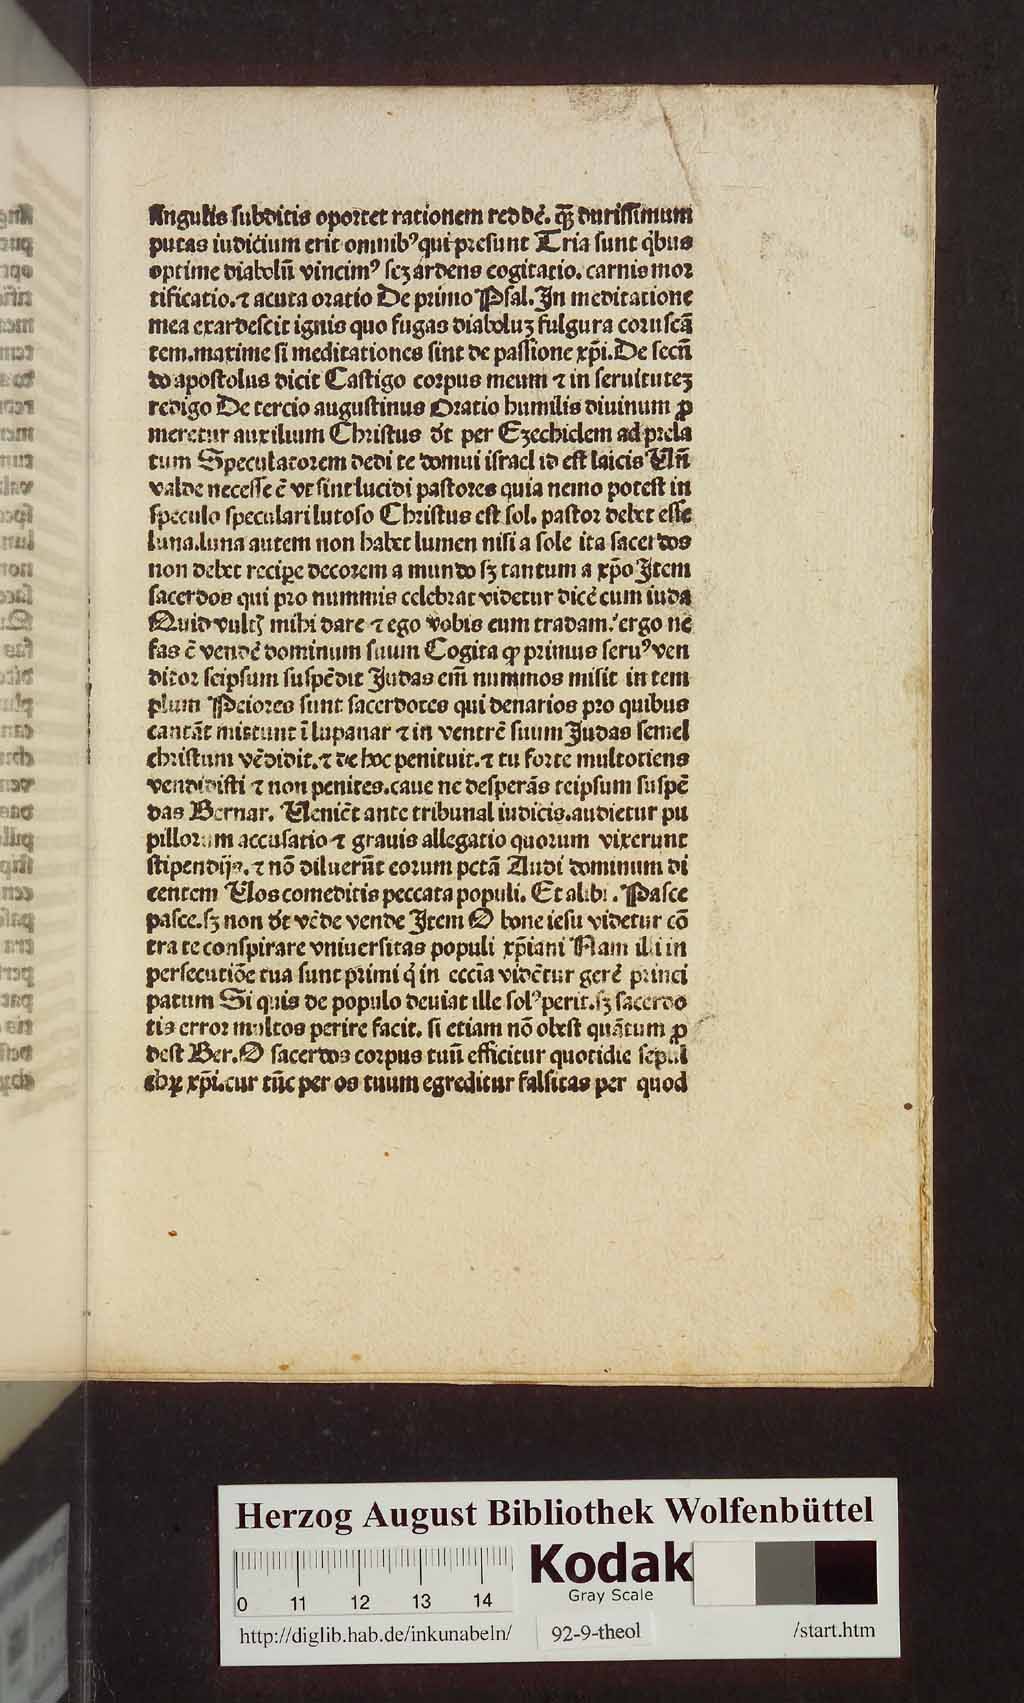 singulis subditis oportet rationem reddē. q̄ȝ durissimum
putas iudicium erit omnibꝰ qui presunt Tria sunt qͥbus
optime diabolū vincimꝰ scȝ ardens cogitatio. carnis mor
tificatio. ⁊ acuta oratio De primo Psal. In meditatione
mea exardescit ignis quo fugas diaboluȝ fulgura coruscā
tem. maxime si meditationes sint de passione xp̄i. De secū
do apostolus dicit Castigo corpus meum ⁊ in seruituteȝ
redigo De tercio augustinus Oratio humilis diuinum ꝓ
meretur auxilium Christus dt̄ per Ezechielem ad prela
tum Speculatorem dedi te domui israel id est laicis Un̄
valde necesse ē vt sint lucidi pastores quia nemo potest in
speculo speculari lutoso Christus est sol. pastor debet esse
luna. luna autem non habet lumen nisi a sole ita sacerdos
non debet recipe decorem a mundo sȝ tantum a xp̄o Item
sacerdos qui pro nummis celebrat videtur dicē cum iuda
Quid vultꝭ mihi dare ⁊ ego vobis eum tradam? ergo ne
fas ē vendē dominum suum Cogita ꝙ primus seruꝰ ven
ditor seipsum suspēdit Judas em̄ nummos misit in tem
plum Peiores sunt sacerdotes qui denarios pro quibus
cantāt mittunt ī lupanar ⁊ in ventrē suum Judas semel
christum vēdidit. ⁊ de hoc penituit. ⁊ tu forte multotiens
vendidisti ⁊ non penites. caue ne desperās teipsum suspē
das Bernar. Veniēt ante tribunal iudicis. audietur pu
pillorum accusatio ⁊ grauis allegatio quorum vixerunt
stipendijs. ⁊ nō diluerūt eorum pctā Audi dominum di
centem Vos comeditis peccata populi. Et alibi. Pasce
pasce. sȝ non dt̄ vēde vende Item O bone iesu videtur cō
tra te conspirare vniuersitas populi xp̄iani Nam illi in
persecutiōe tua sunt primi qͥ in eccīa vidētur gerē princi
patum Si quis de populo deuiat ille solꝰ perit. sȝ sacerdo
tis error multos perire facit. si etiam nō obest quātum ꝓ
dest Ber. O sacerdos corpus tuū efficitur quotidie sepul
chꝝ xp̄i. cur tūc per os tuum egreditur falsitas per quod
Herzog August Bibliothek Wolfenbüttel
Kodak
Gray Scale
0 11 12 13 14
http://diglib.hab.de/inkunabeln/ 92-9-theol /start.htm